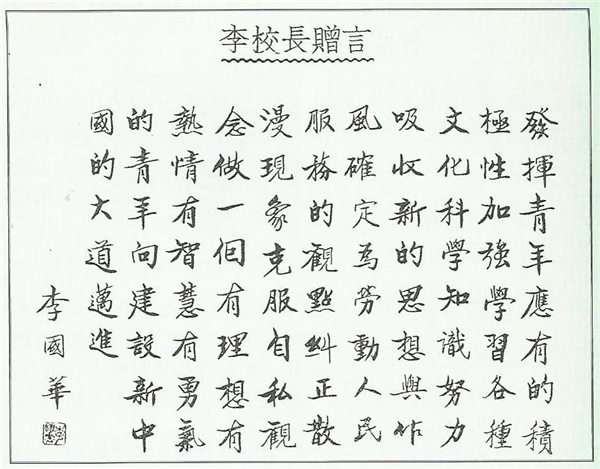 李校長贈言
發揮青年應有的積
極性加強學習各種
文化科學知識努力
吸收新的思想與作
風確定為勞動人民
服務的觀點糾正散
漫現象克服自私觀
念做一個有理想有
熱情有智慧有勇氣
的青年向建設新中
國的大道邁進
李國華